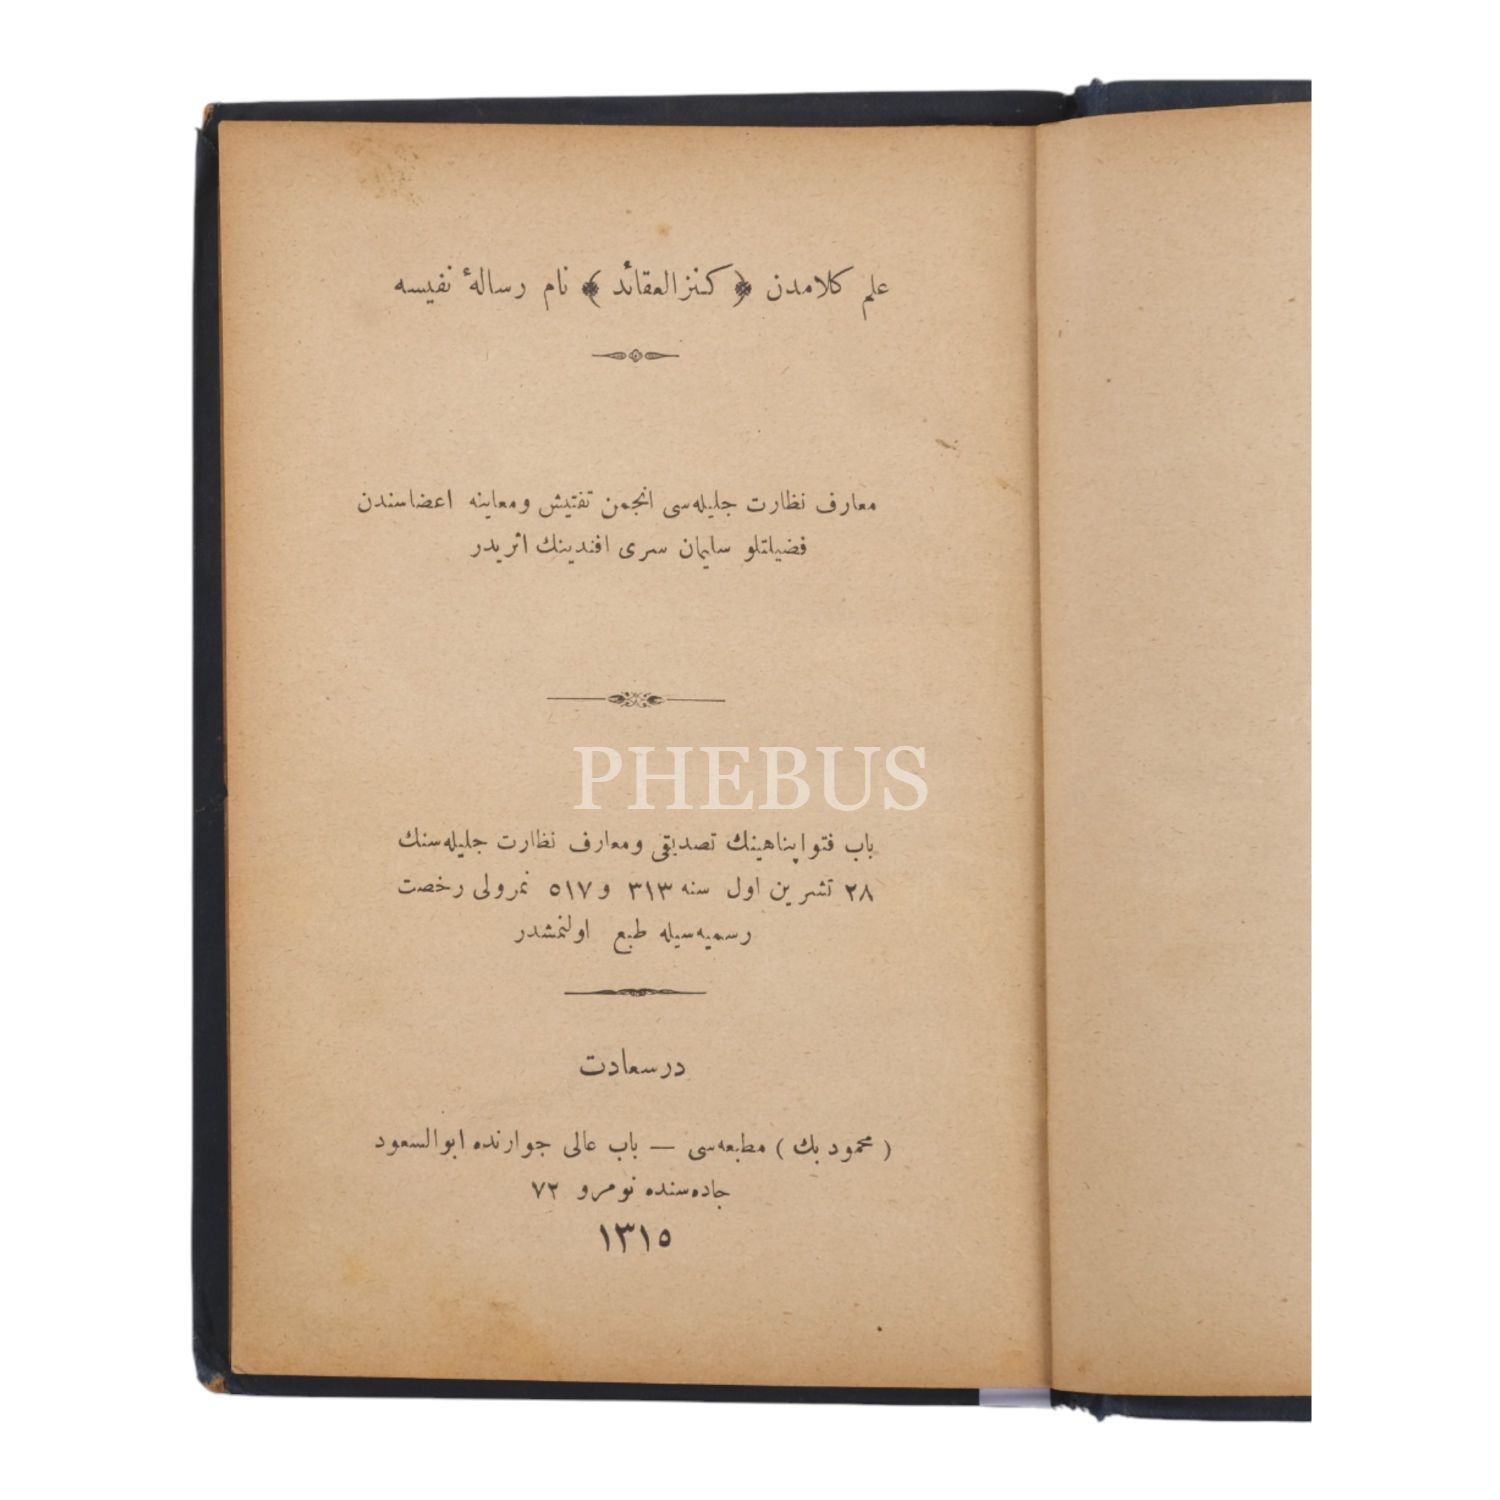 علم كلامدن ﴿ كنز العقائد ﴾ نام رسالهٔ نفيسه
معارف نظارت جليله‌سى انجمن تفتيش ومعاينه اعضاسندن
فضيلتلو سليمان سرى افندينك اثريدر
PHEBUS
باب فتواپناهينك تصديقى ومعارف نظارت جليله‌سنك
٢٨ تشرين اول سنه ٣١٣ و ٥١٧ نمرولى رخصت
رسميه‌سيله طبع اولنمشدر
درسعادت
( محمود بك ) مطبعه‌سى — باب عالى جوارنده ابوالسعود
جاده‌سنده نومرو ٧٢
١٣١٥